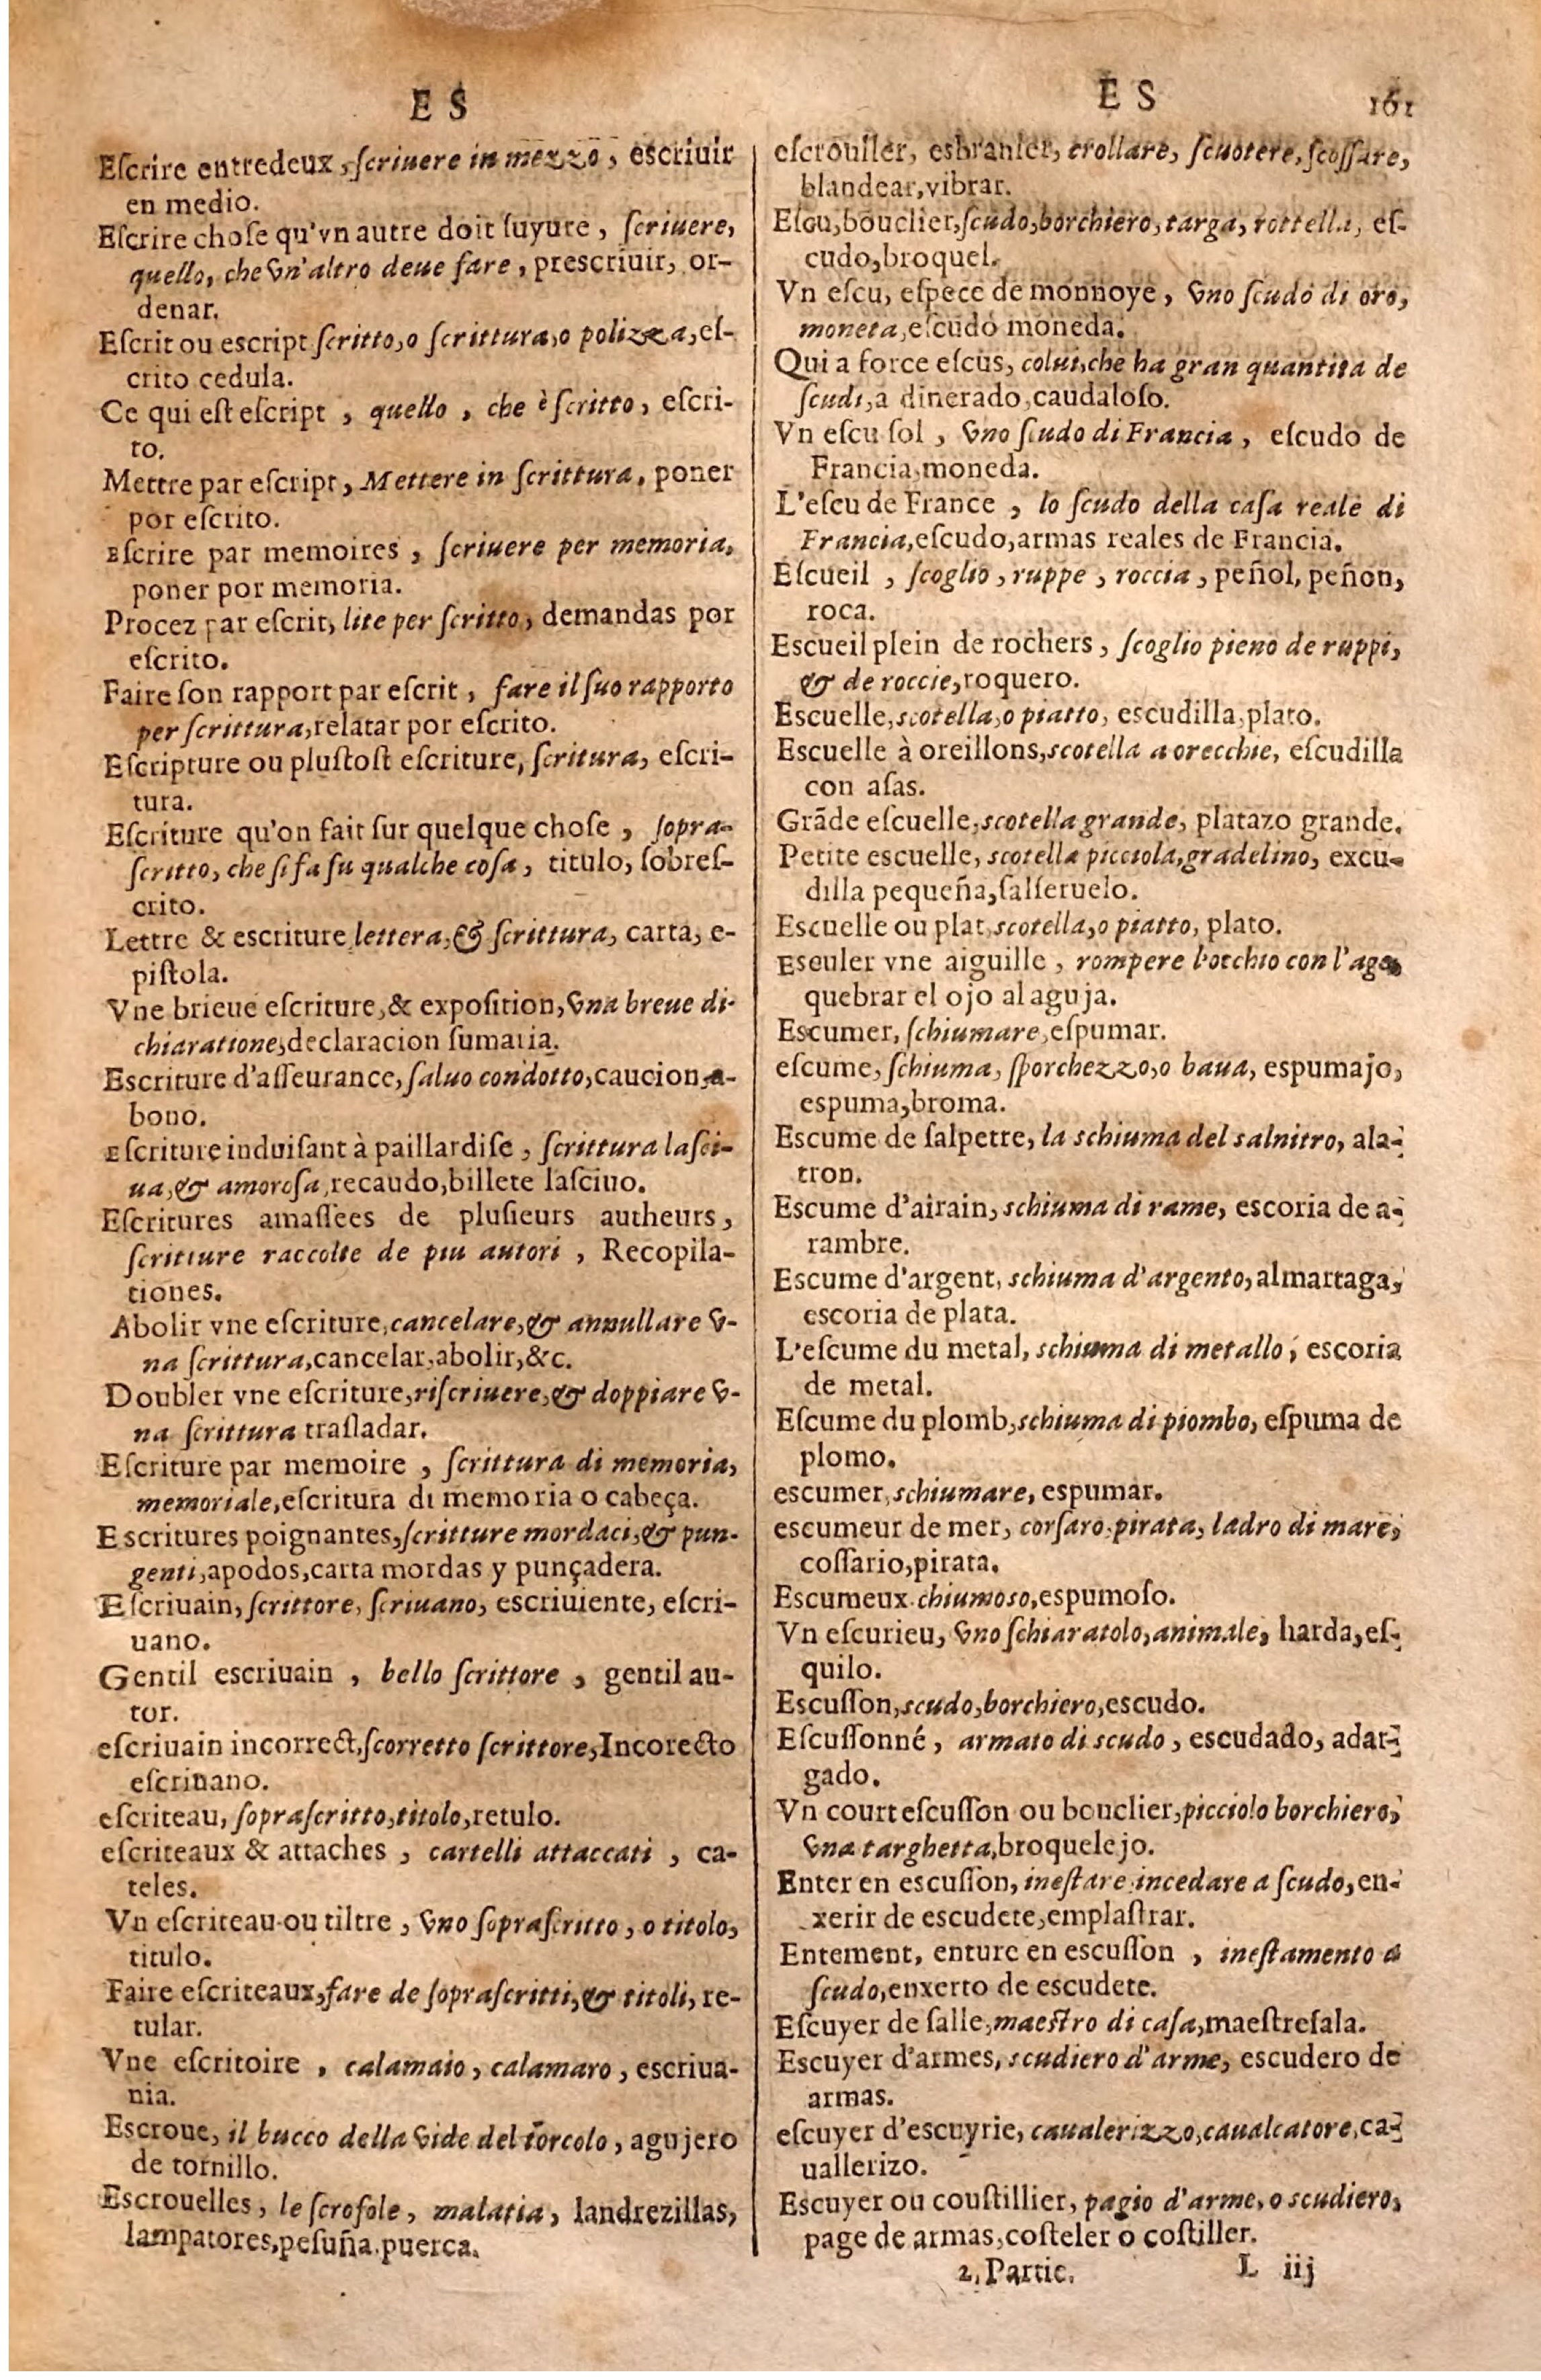 E S
Eſcrire entredeux, ſcriuere in mezzo, eſcriuir
en medio.
Eſcrire choſe qu'vn autre doit ſuyure, ſcriuere,
quello, che vn'altro deue fare, preſcriuir, or-
denar.
Eſcrit ou escript ſcritto, o ſcrittura, o polizza, eſ-
crito cedula.
Ce qui eſt eſcript, quello, che è ſcritto, eſcri-
to.
Mettre par eſcript, Mettere in ſcrittura, poner
por eſcrito.
Eſcrire par memoires, ſcriuere per memoria,
poner por memoria.
Procez par eſcrit, lite per ſcritto, demandas por
eſcrito.
Faire ſon rapport par eſcrit, fare il ſuo rapporto
per ſcrittura, relatar por eſcrito.
Eſcripture ou pluſtoſt eſcriture, ſcritura, eſcri-
tura.
Eſcriture qu'on fait ſur quelque choſe, ſopra-
ſcritto, che ſi fa ſu qualche coſa, titulo, ſobreſ-
crito.
Lettre & escriture lettera, & ſcrittura, carta, e-
piſtola.
Vne brieue eſcriture, & expoſition, vna breue di-
chiaratione, declaracion ſumaria.
Escriture d'aſſeurance, ſaluo condotto, caucion, a-
bono.
Eſcriture induiſant à paillardiſe, ſcrittura laſci-
ua, & amoroſa, recaudo, billete laſciuo.
Eſcritures amaſſees de pluſieurs autheurs,
ſcritture raccolte de piu autori, Recopila-
tiones.
Abolir vne eſcriture, cancelare, & annullare v-
na ſcrittura, cancelar, abolir, &c.
Doubler vne eſcriture, riſcriuere, & doppiare v-
na ſcrittura trasladar.
Eſcriture par memoire, ſcrittura di memoria,
memoriale, eſcritura di memoria o cabeça.
Escritures poignantes, ſcritture mordaci, & pun-
genti, apodos, carta mordas y punçadera.
Eſcriuain, ſcrittore, ſcriuano, escriuiente, eſcri-
uano.
Gentil escriuain, bello ſcrittore, gentil au-
tor.
eſcriuain incorrect, ſcorretto ſcrittore, Incorecto
eſcrinano.
eſcriteau, ſopraſcritto, titolo, retulo.
eſcriteaux & attaches, cartelli attaccati, ca-
teles.
Vn eſcriteau ou tiltre, vno ſopraſcritto, o titolo,
titulo.
Faire eſcriteaux, fare de ſopraſcritti, & titoli, re-
tular.
Vne eſcritoire, calamaio, calamaro, escriua-
nia.
Escroue, il bucco della vide del torcolo, agujero
de tornillo.
Escrouelles, le ſcrofole, malatia, landrezillas,
lampatores, peſuña. puerca.
E S 161
eſcrouller, esbranler, crollare, ſcuotere, ſcoſſare,
blandear, vibrar.
Eſcu, bouclier, ſcudo, borchiero, targa, rottella, eſ-
cudo, broquel.
Vn eſcu, eſpece de monnoye, vno ſcudo di oro,
moneta, eſcudo moneda.
Qui a force eſcus, colui, che ha gran quantita de
ſcudi, a dinerado, caudaloſo.
Vn eſcu ſol, vno ſcudo di Francia, eſcudo de
Francia, moneda.
L'eſcu de France, lo ſcudo della caſa reale di
Francia, eſcudo, armas reales de Francia.
Eſcueil, ſcoglio, ruppe, roccia, peñol, peñon,
roca.
Escueil plein de rochers, ſcoglio pieno de ruppi,
& de roccie, roquero.
Escuelle, scotella, o piatto, escudilla, plato.
Escuelle à oreillons, scotella a orecchie, eſcudilla
con aſas.
Grãde eſcuelle, scotella grande, platazo grande.
Petite escuelle, scotella picciola, gradelino, excu-
dilla pequeña, ſalſeruelo.
Escuelle ou plat, scotella, o piatto, plato.
Esculer vne aiguille, rompere l'occhio con l'ago,
quebrar el ojo al aguja.
Escumer, ſchiumare, eſpumar.
eſcume, ſchiuma, ſporchezzo, o baua, espumajo,
espuma, broma.
Escume de ſalpetre, la schiuma del salnitro, ala-
tron.
Escume d'airain, schiuma di rame, escoria de a-
rambre.
Escume d'argent, schiuma d'argento, almartaga,
escoria de plata.
L'eſcume du metal, schiuma di metallo, escoria
de metal.
Eſcume du plomb, schiuma di piombo, eſpuma de
plomo.
escumer, schiumare, espumar.
escumeur de mer, corſaro, pirata, ladro di mare,
coſſario, pirata.
Escumeux chiumoso, espumoſo.
Vn eſcurieu, vno ſchiaratolo, animale, harda, eſ-
quilo.
Escuſſon, scudo, borchiero, escudo.
Eſcuſſonné, armato di scudo, escudado, adar-
gado.
Vn court eſcuſſon ou bouclier, picciolo borchiero,
vna targhetta, broquelejo.
Enter en escuſſon, ineſtare, incedare a ſcudo, en-
xerir de escudete, emplaſtrar.
Entement, enture en escuſſon, ineſtamento a
ſcudo, enxerto de escudete.
Eſcuyer de ſalle, maeſtro di caſa, maeſtreſala.
Escuyer d'armes, scudiero d'arme, escudero de
armas.
eſcuyer d'eſcuyrie, caualerizzo, caualcatore, ca-
uallerizo.
Escuyer ou couſtillier, pagio d'arme, o scudiero,
page de armas, coſteler o coſtiller.
2. Partie. L iij